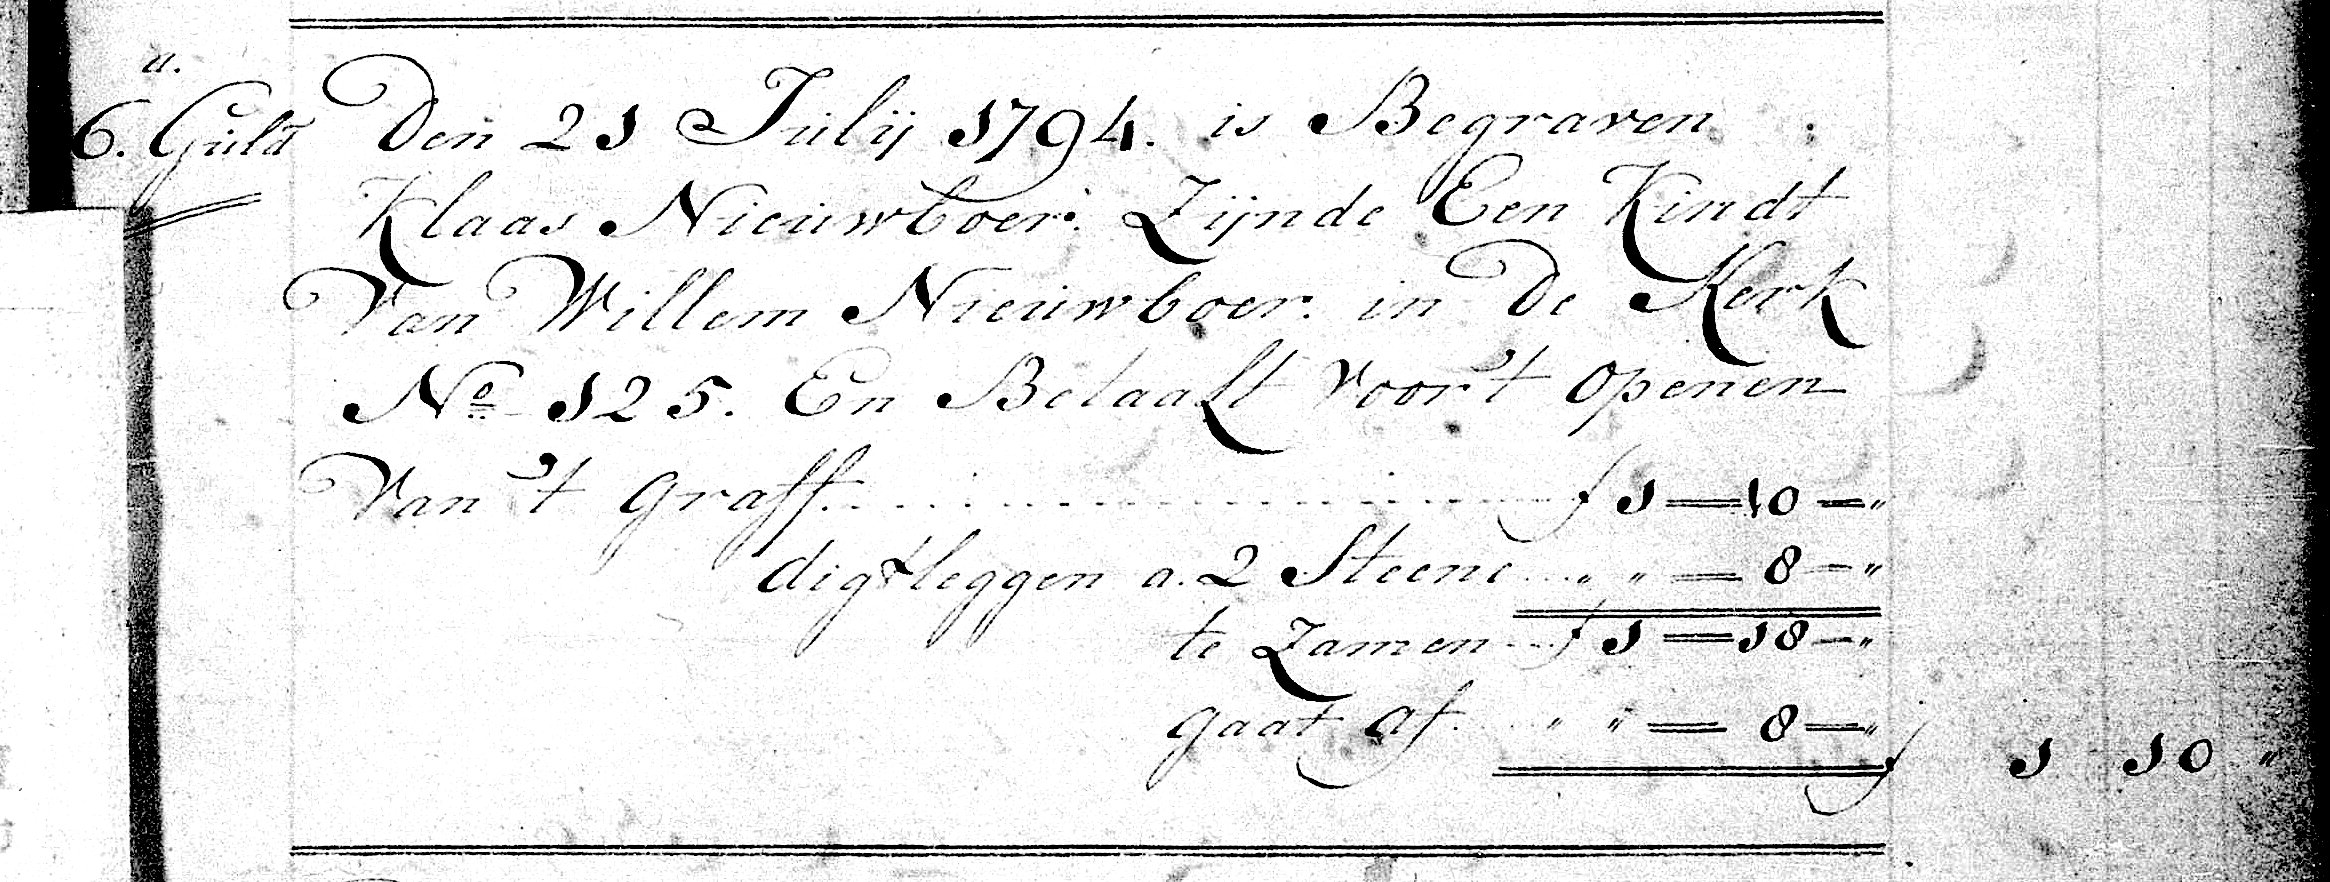 a.
6. Guld
Den 21 Julij 1794. is Begraven
Klaas Nieuwboer: Zijnde Een Kindt
Van Willem Nieuwboer. in De Kerk
No 125. En Betaalt voor 't openen
Van 't graff. f 1 — 10 — "
digtleggen a. 2 Steene " " — 8 — "
te Zamen f 1 — 18 — "
gaat af. " " — 8 — "
f 1 10 "